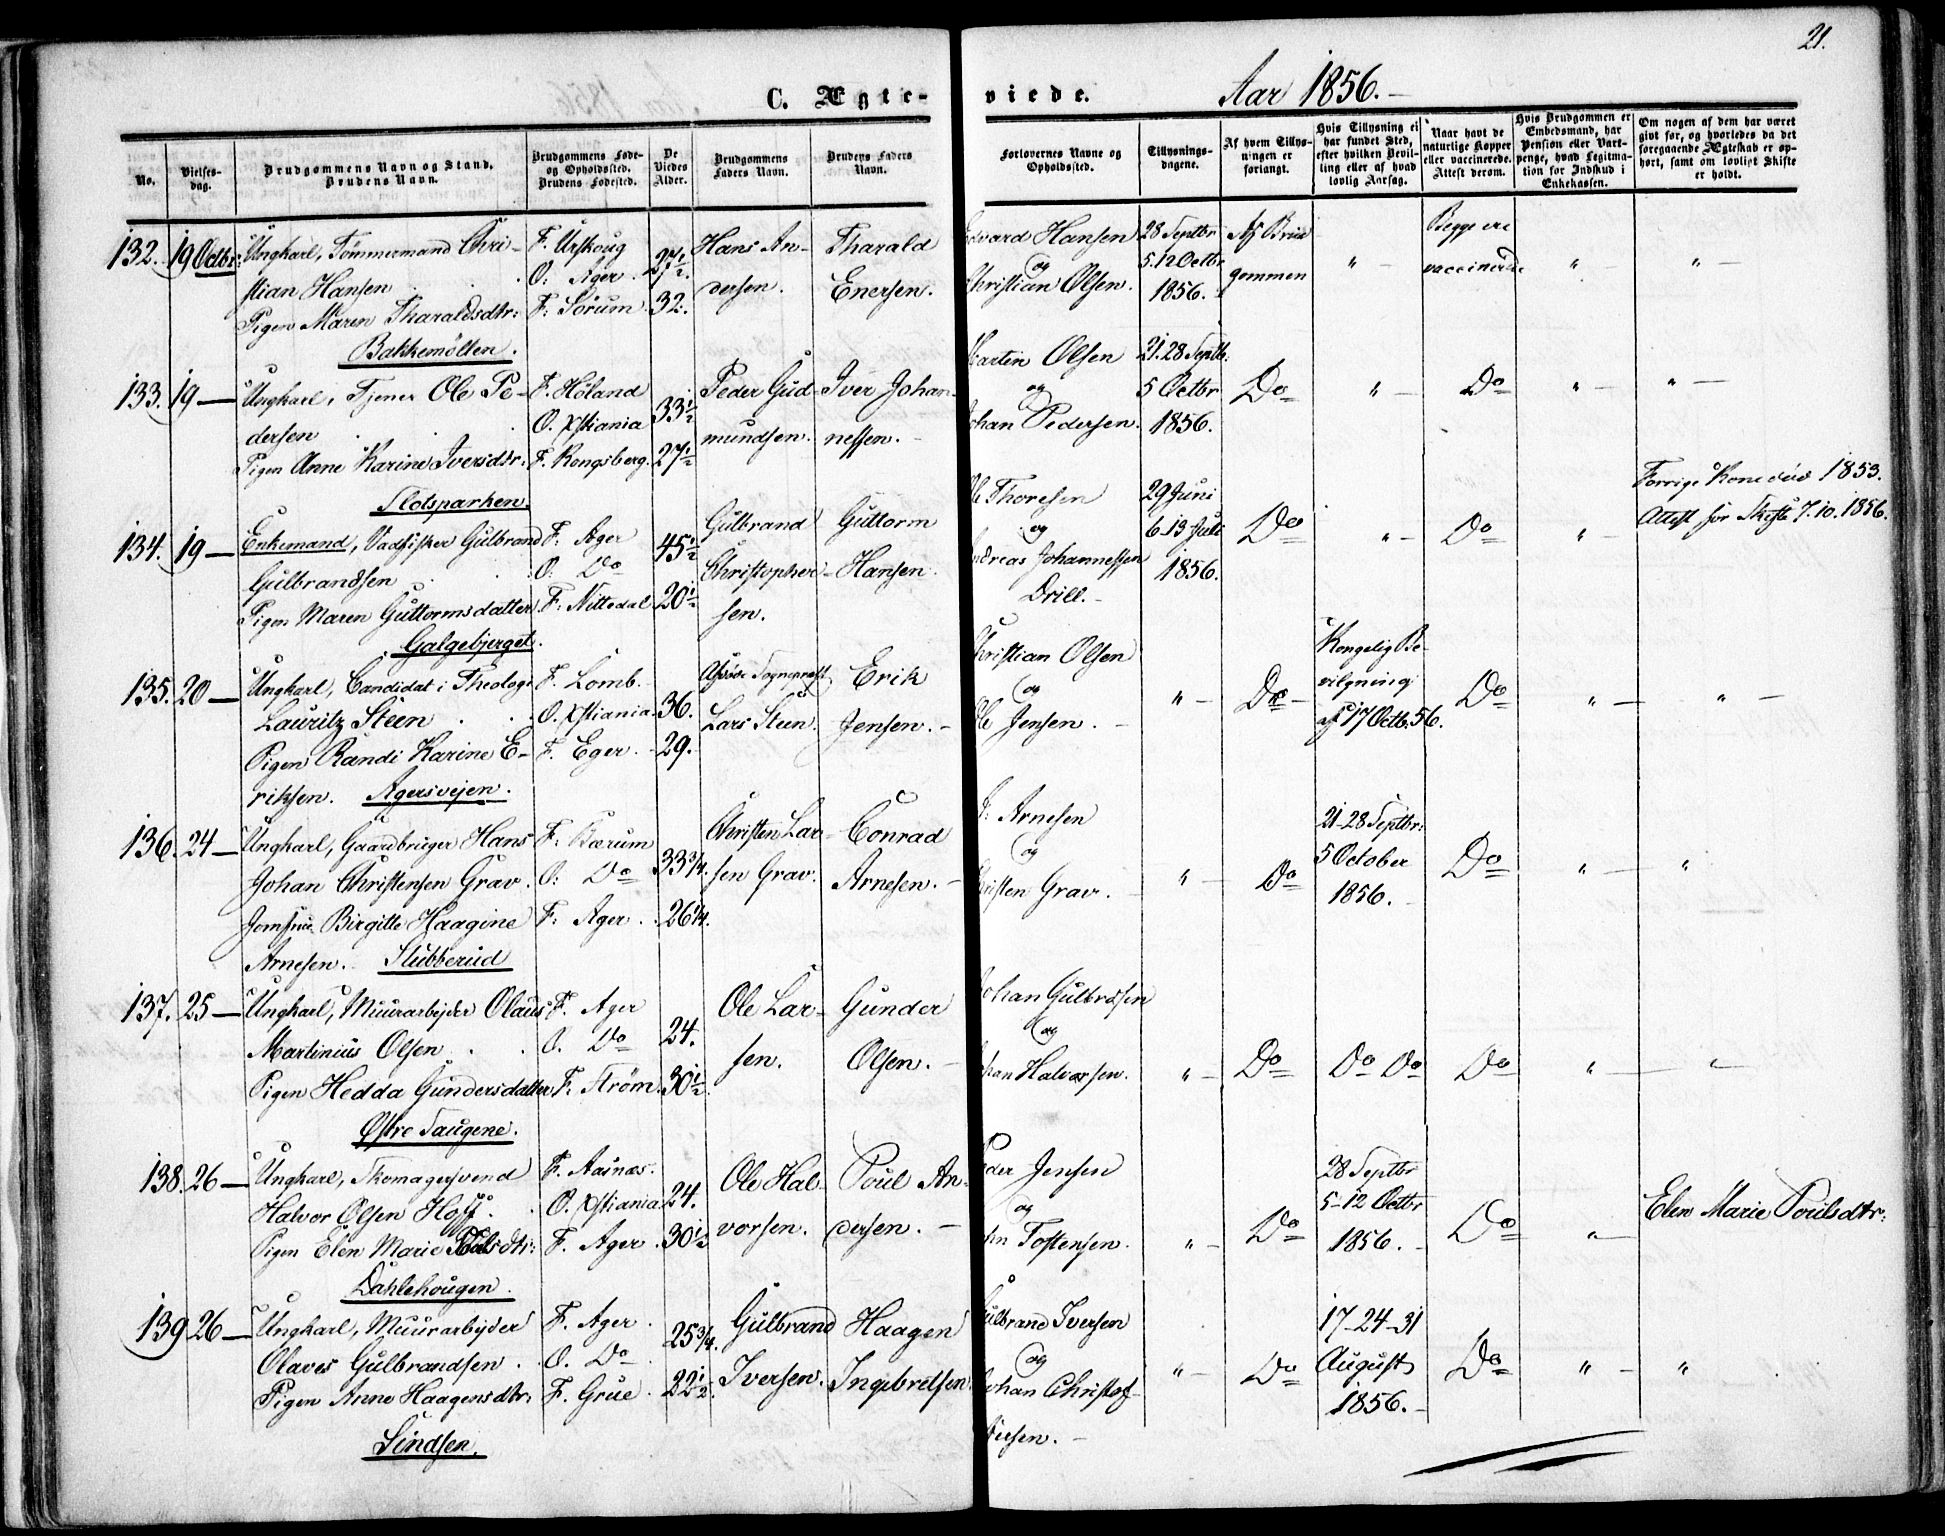 21.
C. Ægte-viede. Aar 1856.
No.
Vielses-dag.
Brudgommens Navn og Stand.
Brudens Navn.
Brudgommens Føde- og Opholdssted.
Brudens Fødested.
De Viedes Alder.
Brudgommens Faders Navn.
Brudens Faders Navn.
Forlovernes Navne og Opholdssted.
Tillysnings-dagene.
Af hvem Tillysningen er forlangt.
Hvis Tillysning ei har fundet Sted, efter hvilken Bevilling eller af hvad lovlig Aarsag.
Naar havt de naturlige Kopper eller vaccinerede. Attest derom.
Hvis Brudgommen er Embedsmand, har Pension eller Vartpenge, hvad Legitimation for Indskud i Enkekassen.
Om nogen af dem har været givt før, og hvorledes da det foregaaende Ægteskab er ophørt, samt om lovligt Skifte er holdt.
132. 19 Octbr: Ungkarl, Tømmermand Chri- F. Urskoug 27½. Hans An- Tharald Edvard Hansen 28 Septbr Af Brud- Begge ere
stian Hansen O: Ager dersen. Enersen. og 5. 12 Octbr gommen " vaccinerede " "
Pigen Maren Tharaldsdtr: F: Sørum 32. Christian Olsen. 1856.
Bakkemølten.
133. 19 — Ungkarl, Tjener Ole Pe- F. Høland 33½ Peder Gud- Iver Johan- Martin Olsen 21. 28 Septb: Do " Do " "
dersen O. Xstiania mundsen. nessen. og 5 Octbr
Pigen Anne Karine Iversdtr: F. Kongsberg. 27½ Johan Pedersen. 1856.
Slotsparken.
134. 19 — Enkemand, Vadfisker Gulbrand F: Ager 45½ Gulbrand Guttorm Ole Thoresen 29 Juni Do " Do " Forrige Kone død 1853.
Gulbrandsen O: Do Christopher- Hansen. og 6. 13 Juli Attest for Skifte 7.10.1856.
Pigen Maren Guttormsdatter F: Nittedal 20½ sen. Andreas Johannessen 1856.
Drill.
Galgebjerget.
135. 20 — Ungkarl, Candidat i Theologi F. Lomb. 36. Sognepræst Erik Christian Olsen " Do Kongelig Be- Do " "
Lauritz Steen O. Xstiania. Lars Steen. Jensen. og vilgning
Pigen Randi Karine E- F. Eger. 29. Ole Jensen. af 17 Octb. 56.
riksen. Agersvejen.
136. 24 — Ungkarl, Gaardbruger Hans F: Bærum 33¾. Christen Lar- Conrad Arnesen " Do 21-28 Septbr: Do " "
Johan Christensen Grav. O: Do sen Grav. Arnesen. og 5 October
Jomfrue Birgitte Haagine F: Ager 26¼. Christen Grav. 1856.
Arnesen. Slubberud
137. 25 — Ungkarl, Muurarbejder Olaus F. Ager 24. Ole Lar- Gunder Johan Gulbrdsen " Do Do Do Do " "
Martinius Olsen O. Do sen. Olsen. og
Pigen Hedda Gundersdatter F: Strøm. 30½ Johan Halvorsen.
Østre Taugene.
138. 26 — Ungkarl, Skomagersvend F. Aasnæs. 24. Ole Hal- Poul An- Peder Jensen " Do 28 Septbr Do " Elen Marie Poulsdtr:
Halvor Olsen Hoff. O. Xstiania vorsen. dersen. og 5-12 Octbr
Pigen Elen Marie Poulsdtr: F. Ager 30½ Tostensen. 1856.
Dahlehougen.
139 26 — Ungkarl, Muurarbejder F. Ager 25¾. Gulbrand Haagen Gulbrand Iversen " Do 17-24-31 Do " "
Olaves Gulbrandsen. O. Do Iversen. Ingebretsen. og August
Pigen Anne Haagensdtr: F. Grue 22½. Johan Christof- 1856.
fersen.
Lindsen.